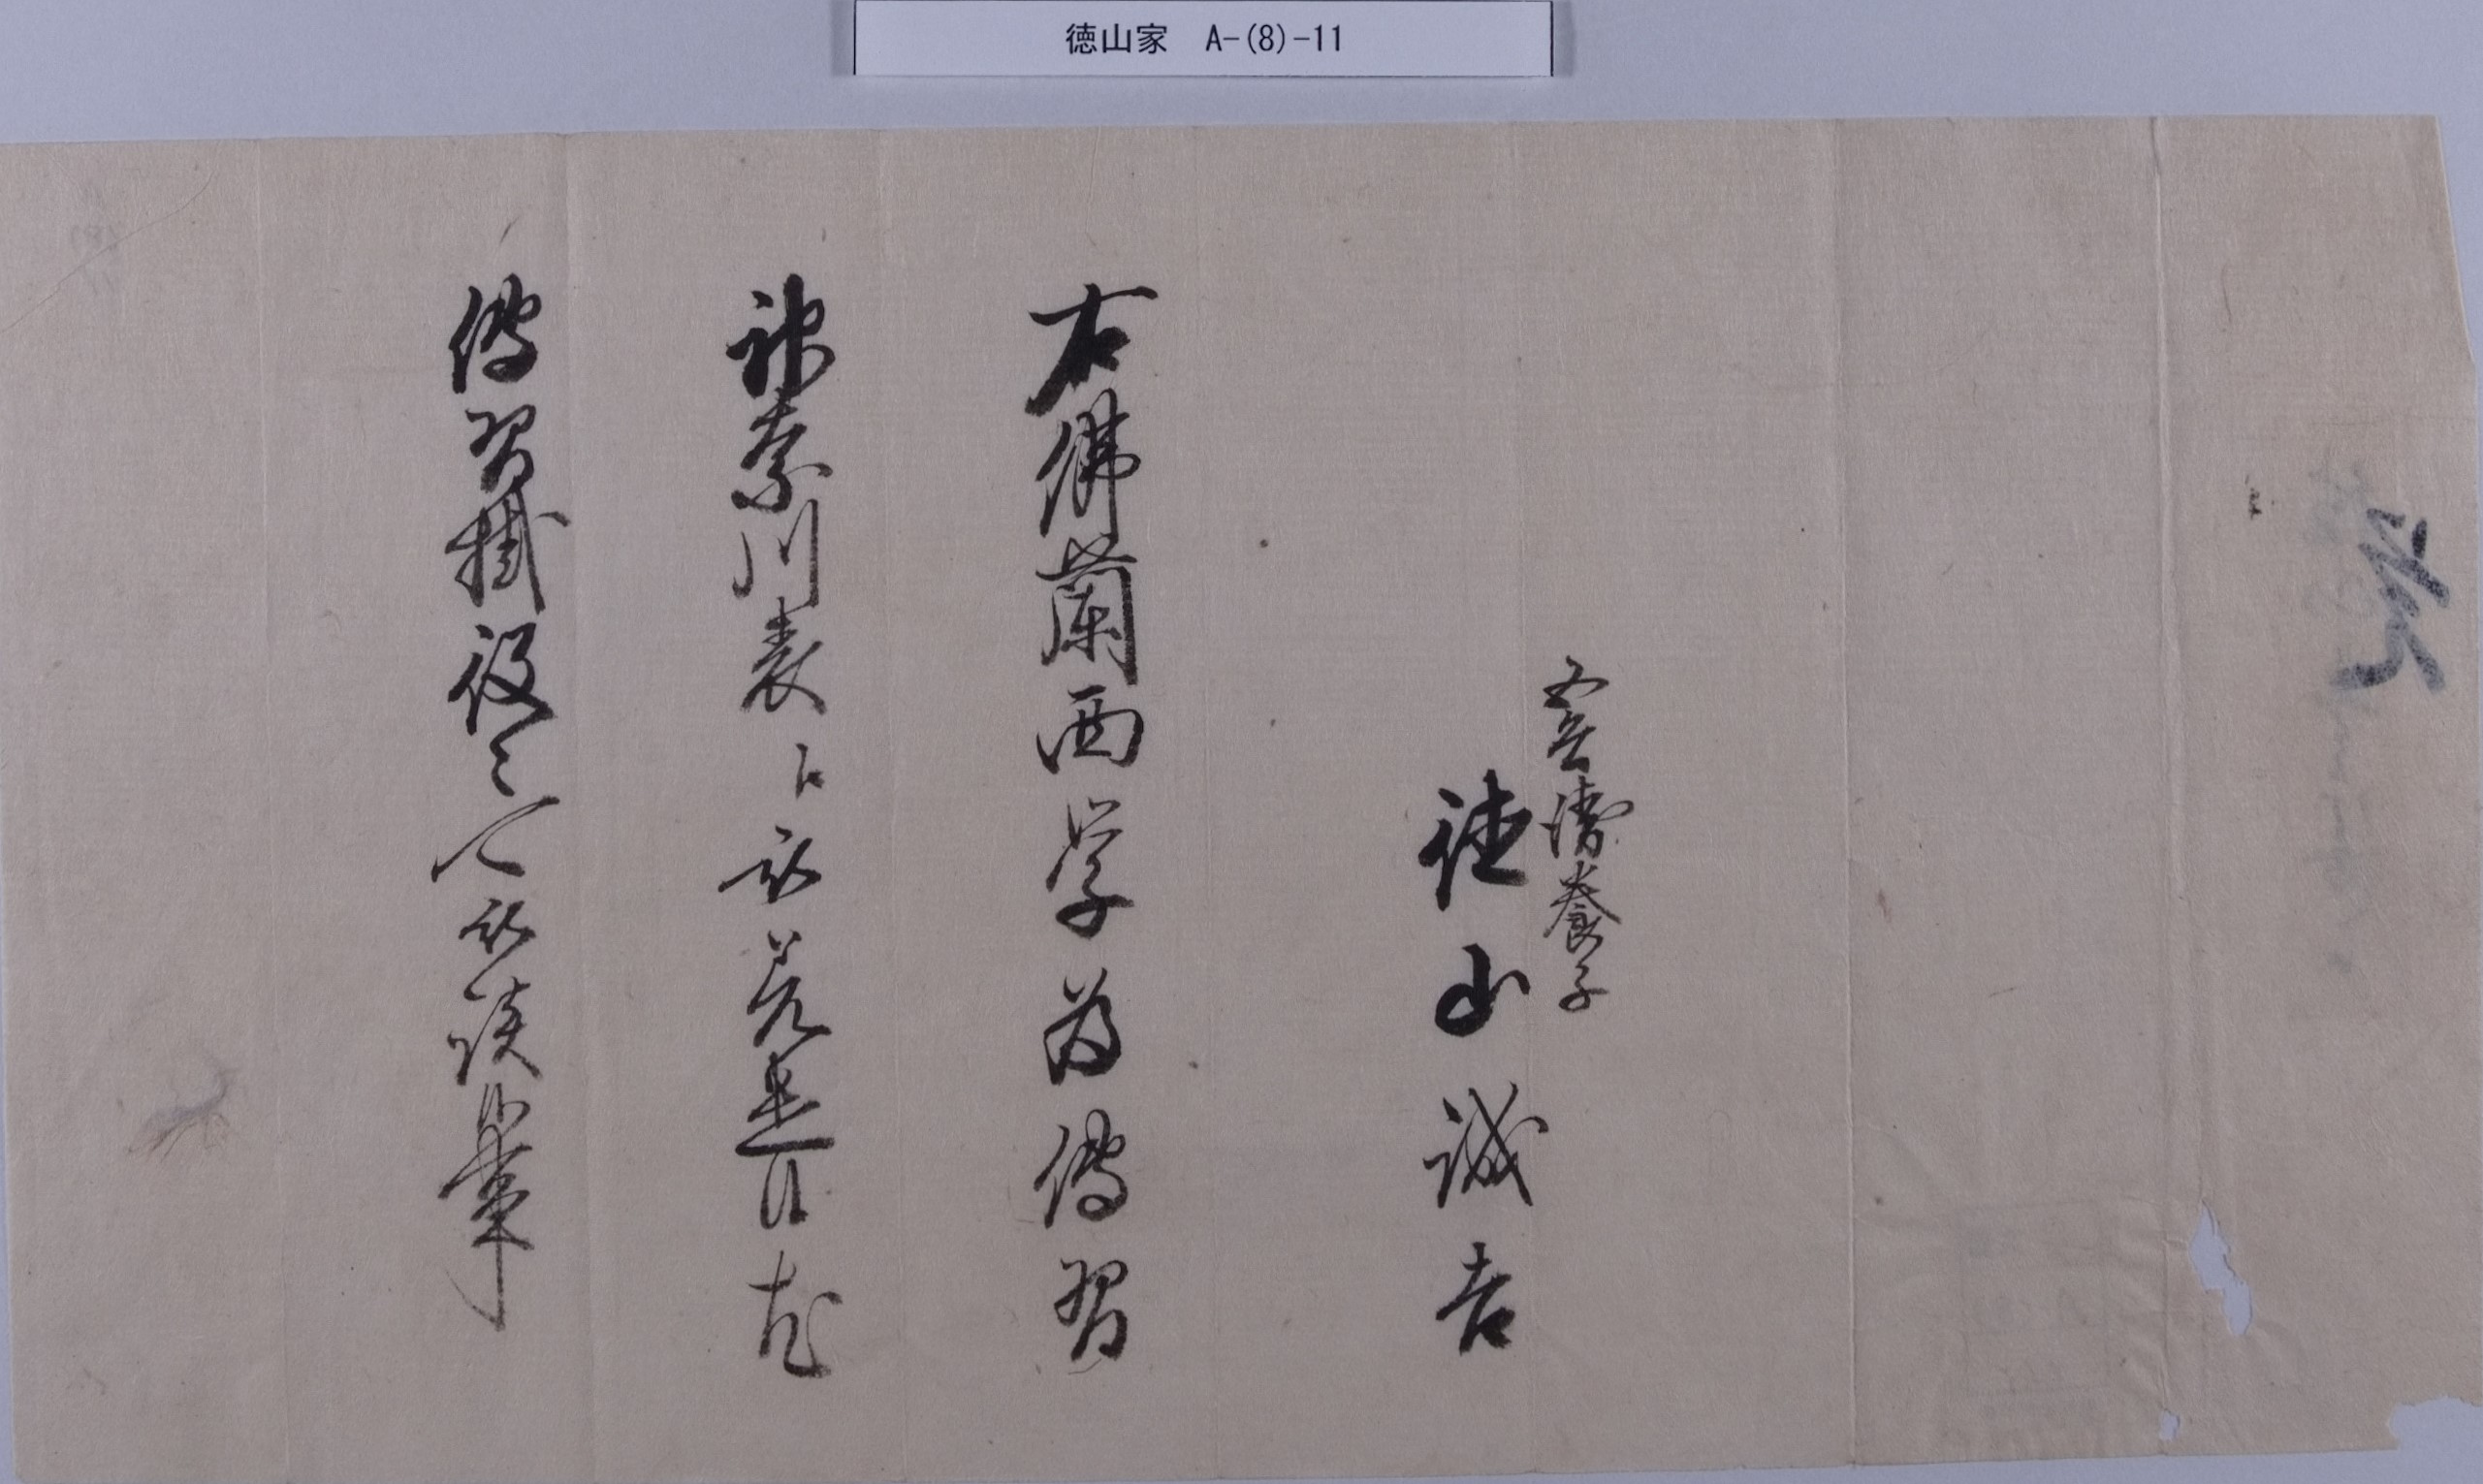 徳山家　A-(8)-11
五兵衛養子
徳山誠吉
右佛蘭西学為傳習
神奈川表江被差遣候
傳習掛役々江被談候事